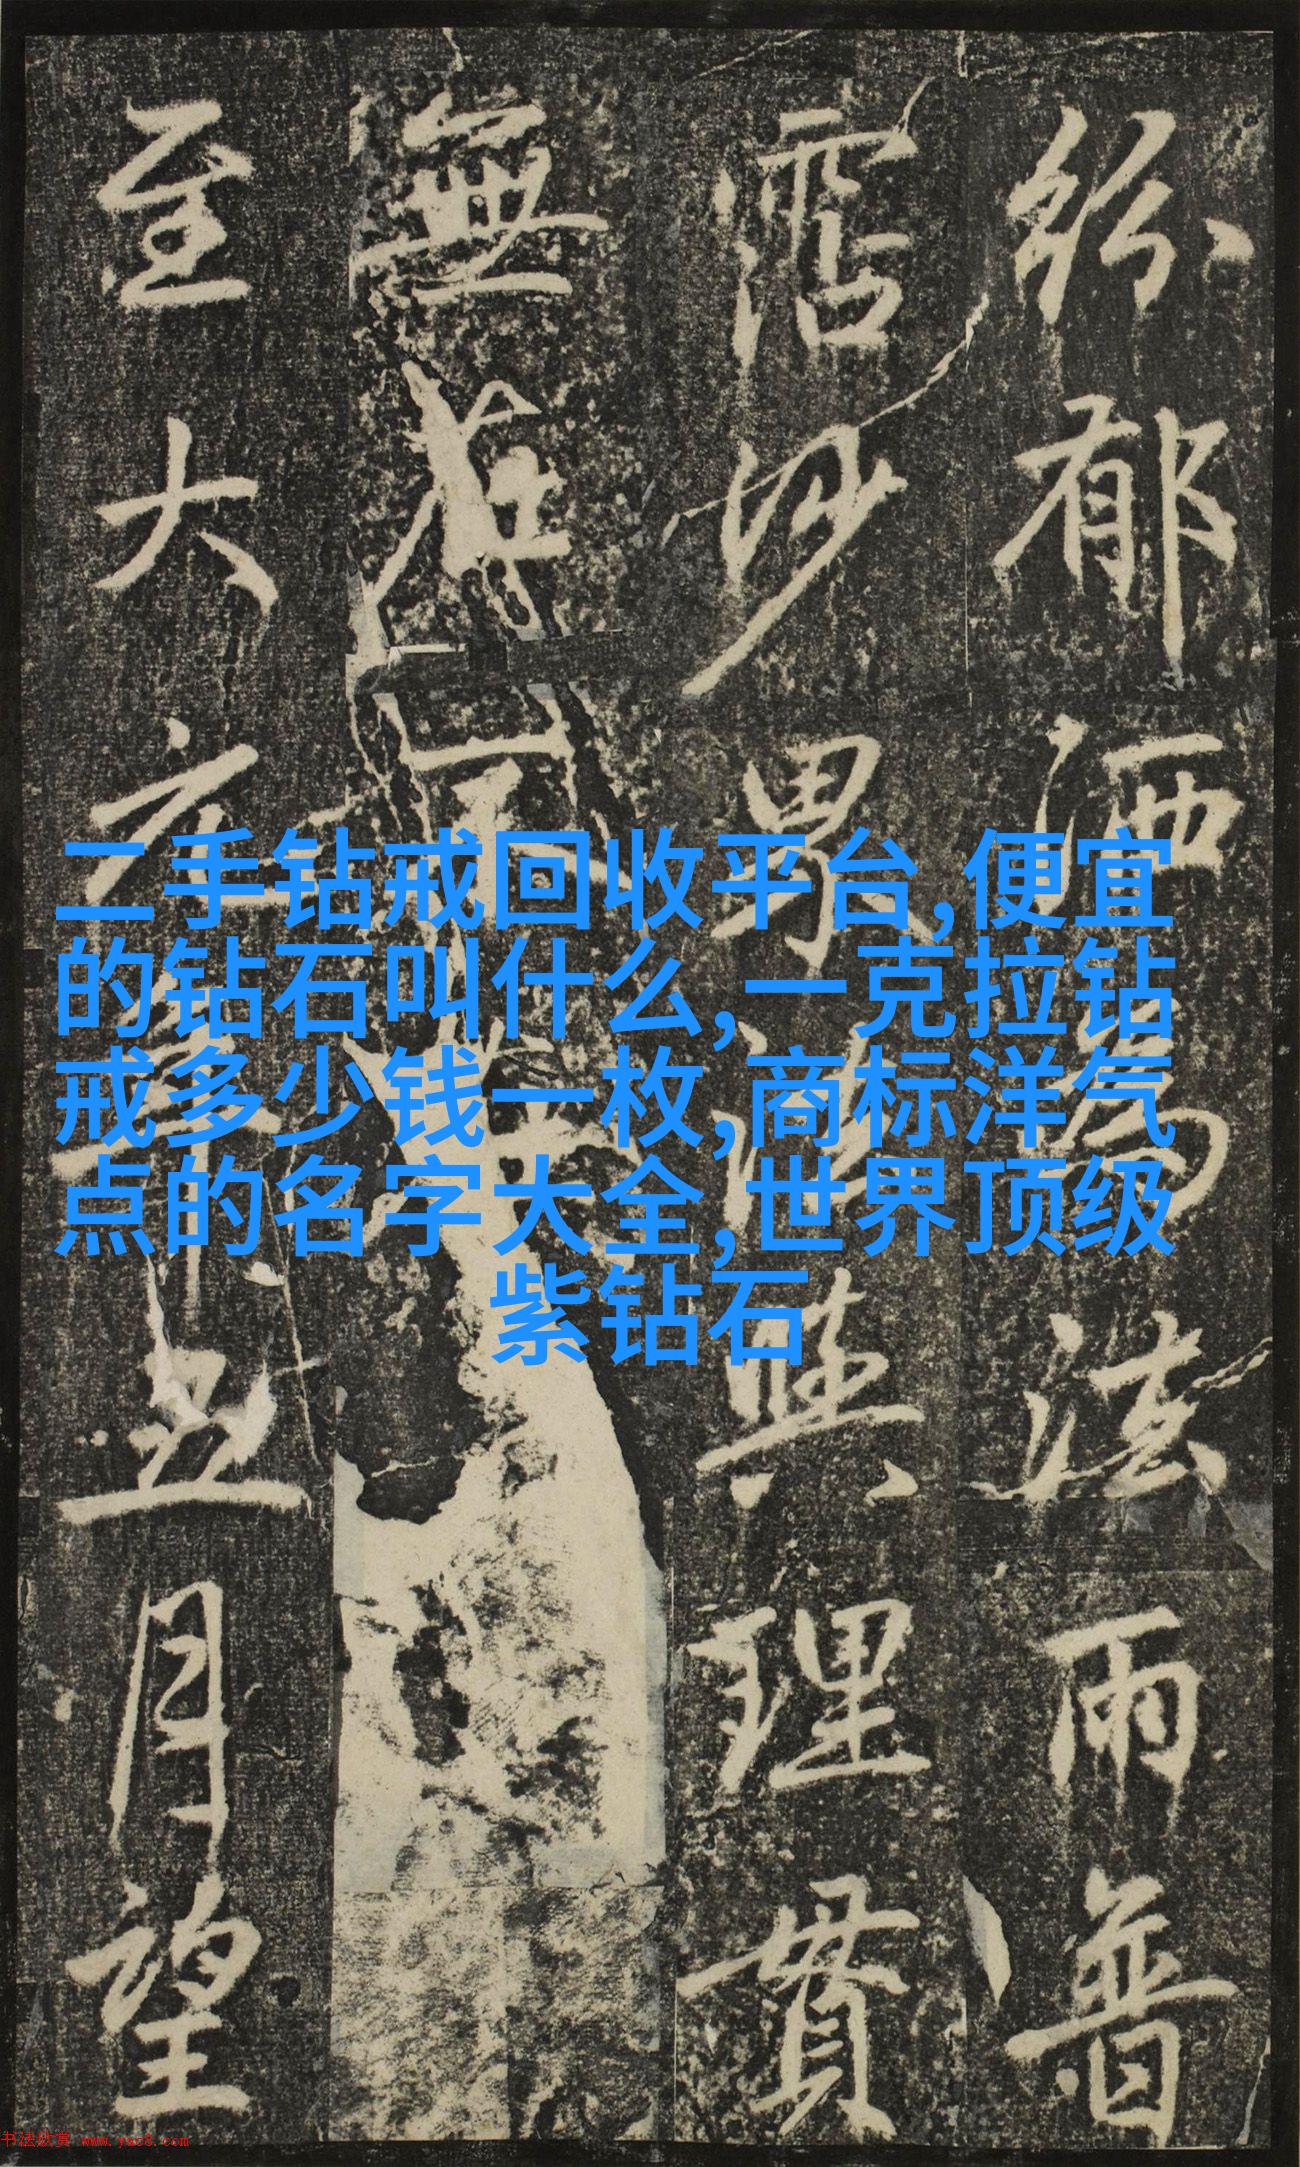 紛郁洒為法雨普
霑沙界法與理貫
無
至大六年五月望
二手钻戒回收平台,便宜
的钻石叫什么,一克拉钻
戒多少钱一枚,商标洋气
点的名字大全,世界顶级
紫钻石
书法欣赏 www.yac8.com